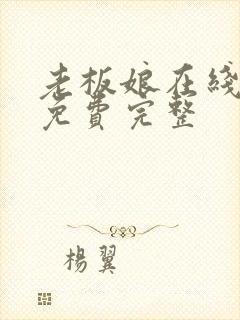 老板娘在线
免費完整
楊翼